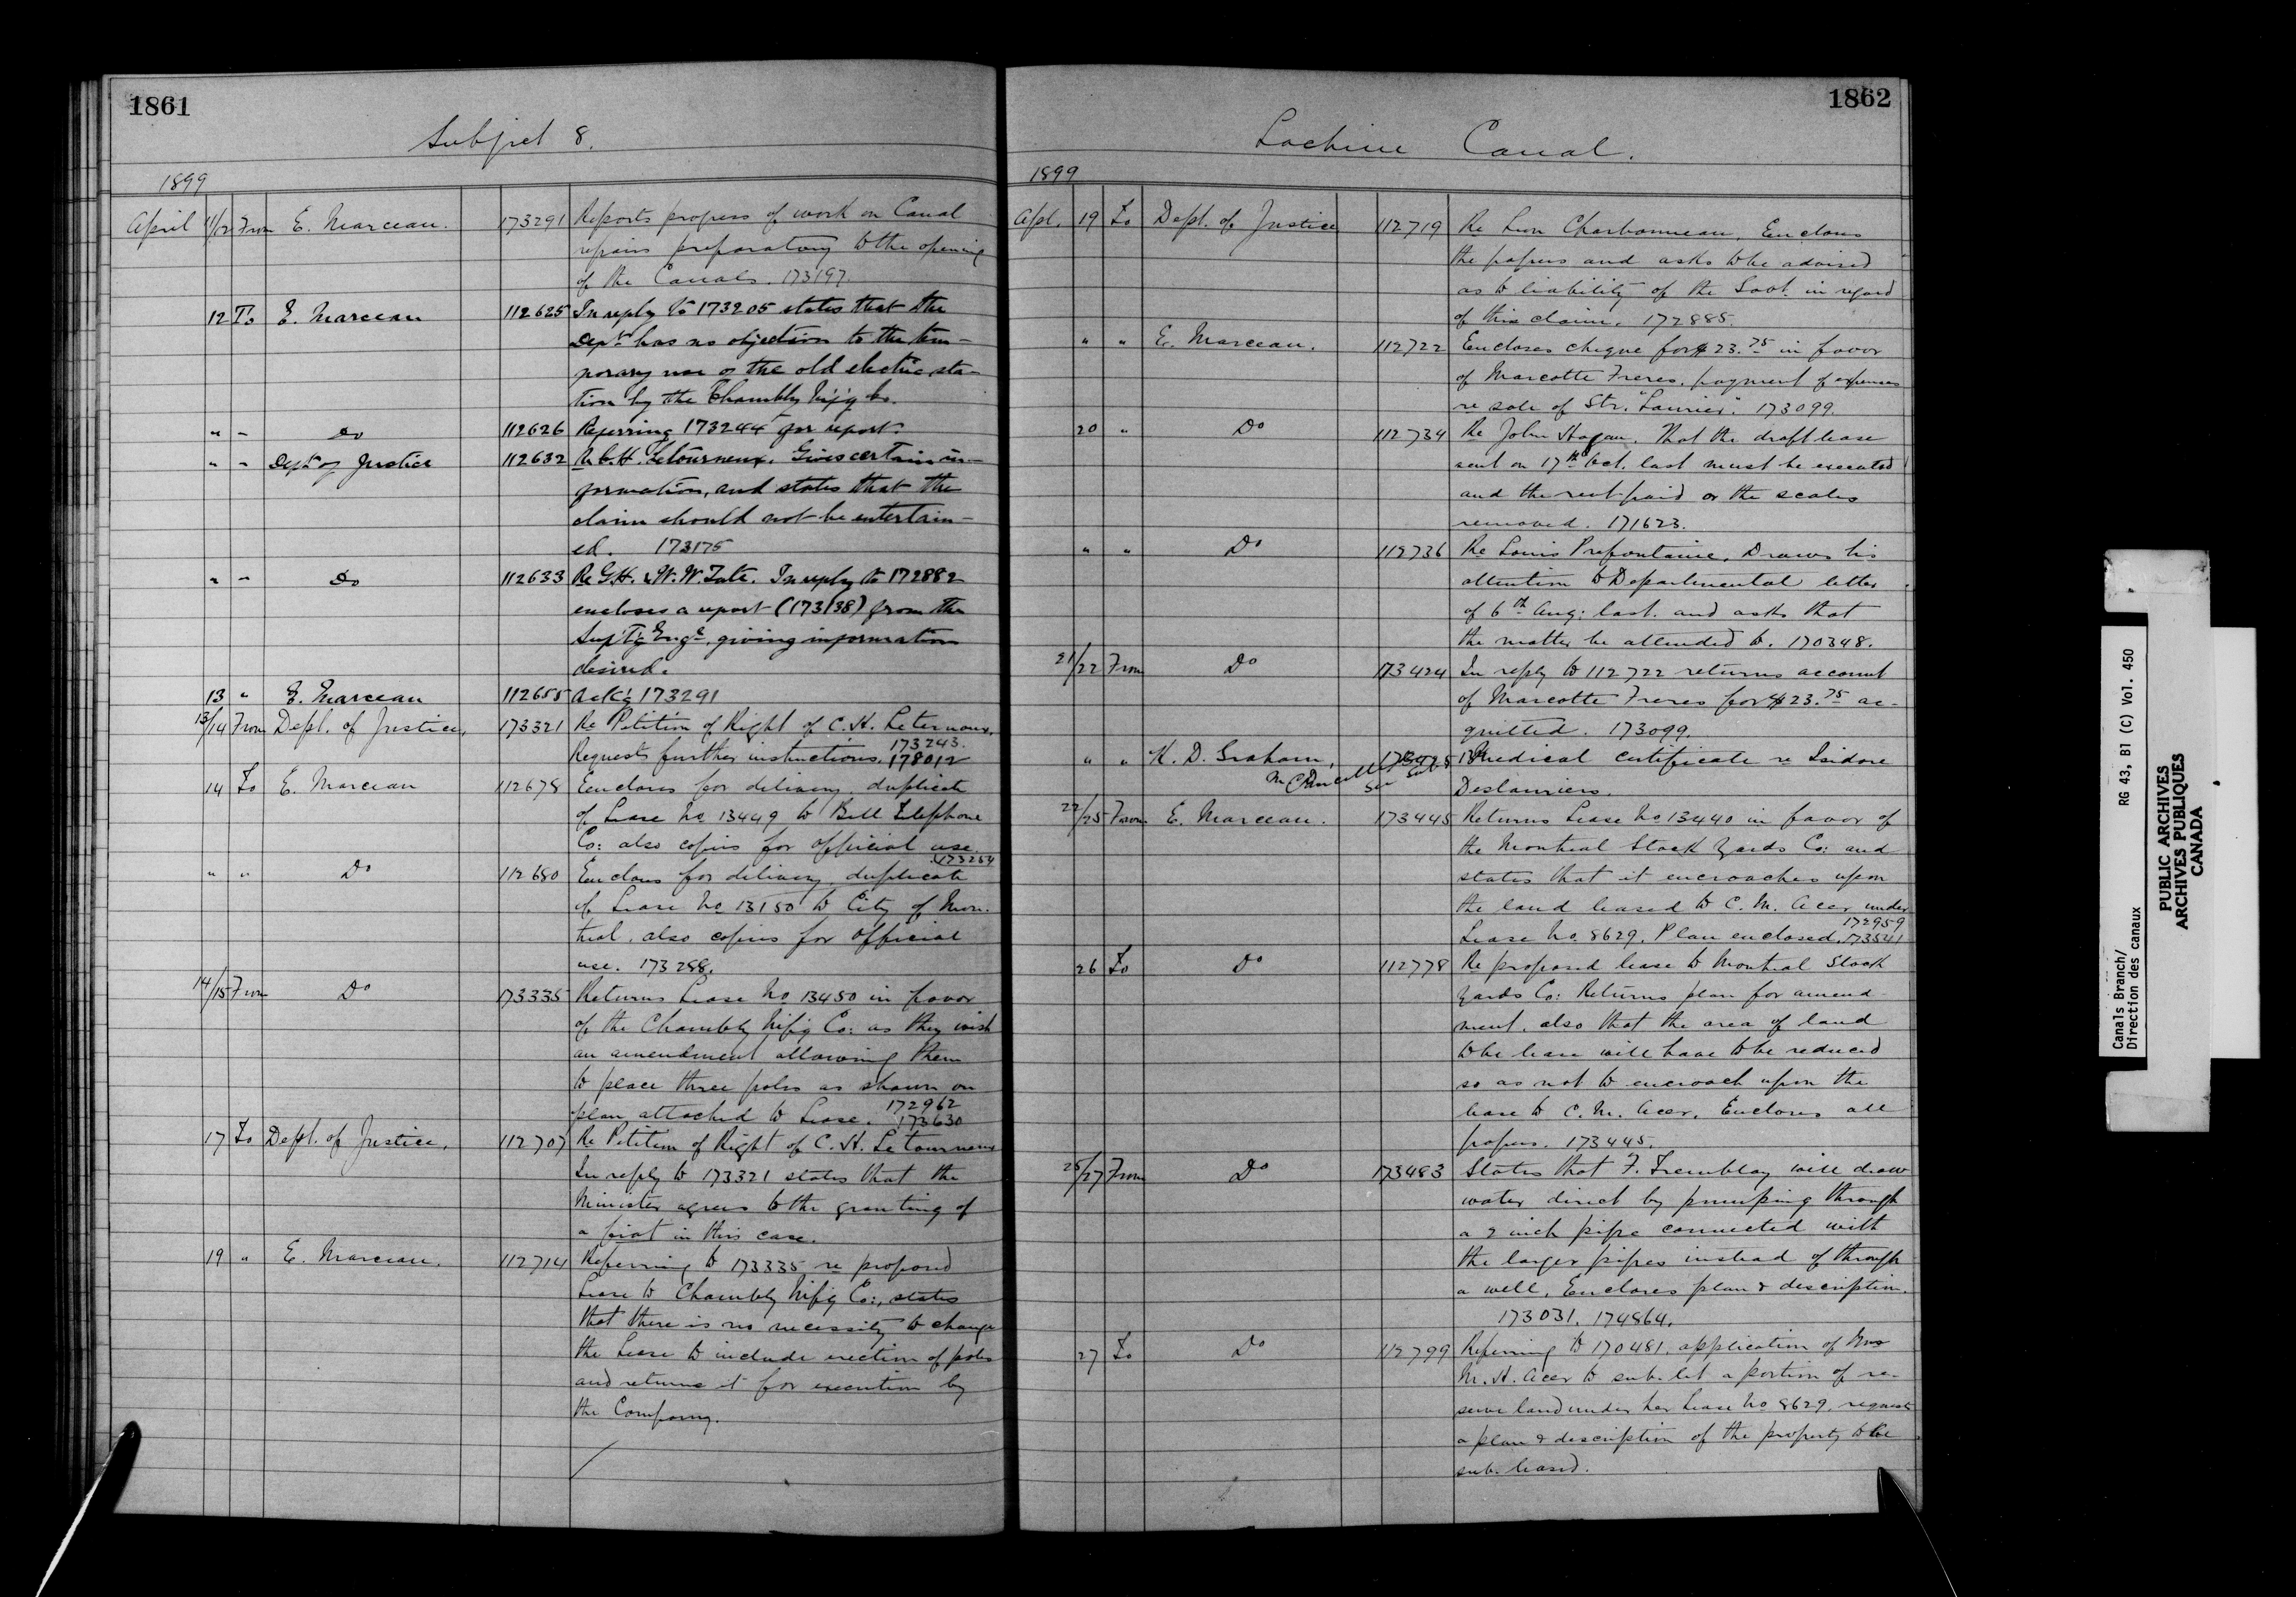 1861
Subject 8.
1899
April 11/12 From E. Marceau. 173291 Reports progress of work on Canal
repairs preparatory to the opening
of the Canals. 173197.
12 To E. Marceau 112625 In reply to 173205 states that the
Dept. has no objection to the tem-
porary use of the old electric sta-
tion by the Chambly M'f'g Co.
" " Do 112626 Referring 173244 for report.
" " Dept of Justice 112632 Re C.H. Letourneux. Gives certain in-
formation, and states that the
claim should not be entertain-
ed. 173175
" " Do 112633 Re G.H. & W.W. Tate. In reply to 172882
encloses a report (173138) from the
Sup't'g Eng'r, giving information
desired.
13 " E. Marceau 112655 Ack'g 173291
13/14 From Dept. of Justice, 173321 Re Petition of Right of C. H. Leternoux,
173243.
Requests further instructions. 178012
14 To E. Marceau 112678 Encloses for delivery, duplicate
of Lease No 13449 to Bell Telephone
Co: also copies for official use.
173254
" " Do 112680 Encloses for delivery, duplicate
of Lease No 13150 to City of Mon-
treal, also copies for official
use. 173288.
14/15 From Do 173335 Returns Lease No 13450 in favor
of the Chambly M'f'g Co: as they wish
an amendment allowing them
to place three poles as shown on
172962
plan attached to Lease. 173630
17 To Dept. of Justice, 112707 Re Petition of Right of C. H. Letourneux
In reply to 173321 states that the
Minister agrees to the granting of
a fiat in this case.
19 " E. Marceau. 112714 Referring to 173335 re proposed
Lease to Chambly M'f'g Co:, states
that there is no necessity to change
the Lease to include erection of poles
and returns it for execution by
the Company.
1862
Lachine Canal.
1899
Apl. 19 To Dept. of Justice 112719 Re Leon Charbonneau, Encloses
the papers and asks to be advised
as to liability of the Govt. in regard
of this claim. 172885.
" " E. Marceau. 112722 Encloses cheque for $23.75 in favor
of Marcotte Freres, payment of expenses
re sale of Str. "Laurier". 173099.
20 " Do 112734 Re John Hagan. That the draft lease
sent on 17th Oct. last must be executed
and the rent paid or the scales
removed. 171623.
" " Do 112736 Re Louis Prefontaine, Draws his
attention to Departmental letter
of 6th Aug: last. and asks that
the matter be attended to. 170348.
21/22 From Do 173424 In reply to 112722 returns account
of Marcotte Freres for $23.75 ac-
quitted. 173099.
" " K. D. Graham, Medical certificate re Isidore
Cancelled See Sub.
Deslauriers.
22/25 From E. Marceau. 173445 Returns Lease No 13440 in favor of
the Montreal Stock Yards Co: and
states that it encroaches upon
the land leased to C. M. Acer under
172959
Lease No. 8629. Plan enclosed. 173541
26 To Do 112778 Re proposed lease to Montreal Stock
Yards Co: Returns plan for amend-
ment, also that the area of land
to be lease will have to be reduced
so as not to encroach upon the
lease to C. M. Acer. Encloses all
papers. 173445.
25/27 From Do 173483 States that F. Tremblay will draw
water direct by pumping through
a 2 inch pipe connected with
the larger pipes instead of through
a well, Encloses plan & description.
173031. 174864.
27 To Do 112799 Referring to 170481, application of Mrs
M. H. Acer to sub-let a portion of re-
serve land under her Lease No 8629, requests
a plan & description of the property to be
sub-leased.
Canals Branch/ RG 43, B1 (C) Vol. 450
Direction des canaux
PUBLIC ARCHIVES
ARCHIVES PUBLIQUES
CANADA